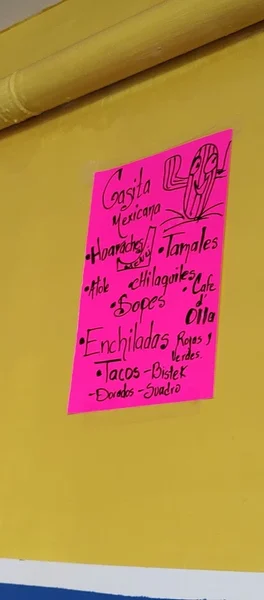 Casita
Mexicana
•Huaraches •Tamales
Menú
•Atole •chilaquiles •Cafe
•Sopes d'
Olla
•Enchiladas Rojas y
Verdes.
•Tacos -Bistek
-Dorados -Suadro